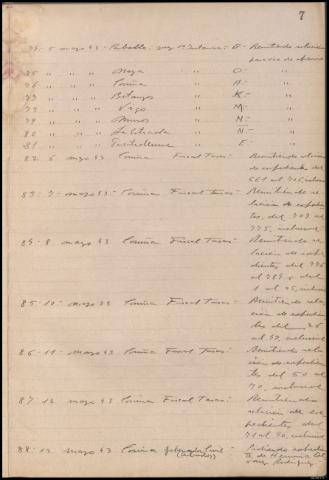 7
74 5 mayo 43 Carballo juez 1ª instancia G- Remitiendo relación
75 " " " Noya " O-
76 " " " Coruña " A-
77 " " " Betanzos " K-
78 " " " Vigo " M-
79 " " " Muros " N-
80 " " " La Estrada " N-
81 " " " " E-
82 6 mayo 43 Coruña Fiscal Tasas- Remitiendo relación
de expedientes del
661 al 708, inclusive
83-7- mayo 43- Coruña Fiscal Tasas- Remitiendo re
lación de expedien
tes, del 709 al
775, inclusive
84-8 mayo 43 Coruña Fiscal Tasas- Remitiendo re
lación de expe
dientes del 776
al 789 y del
1 al 25, inclusive
85-10- mayo 43- Coruña Fiscal Tasas- Remitiendo rela
ción de expedien
tes del 26
al 49, inclusive
86-11- mayo 43- Coruña Fiscal Tasas- Remitiendo rela
ción de expedien
tes del 50 al
70, inclusive
87-12 mayo 43 Coruña Fiscal Tasas- Remitiendo
relación de ex
pedientes, del
71 al 90, inclusive
88-12 mayo 43 Coruña Gobernador Civil
de Herminia
Rodríguez